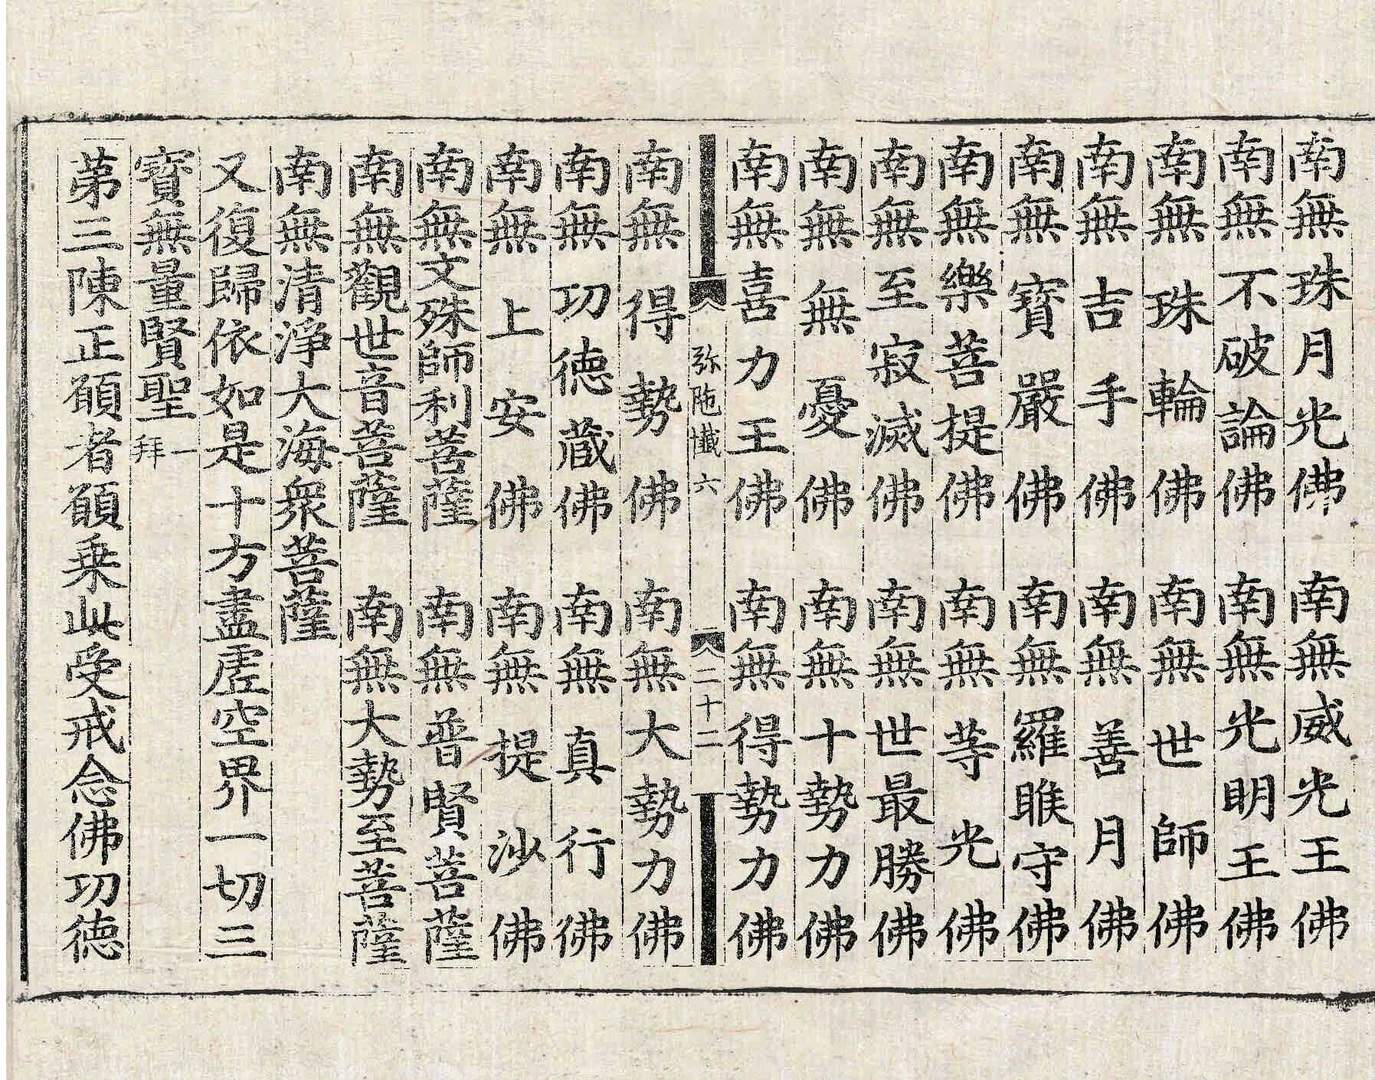 南無珠月光佛　南無威光王佛
南無不破論佛　南無光明王佛
南無珠輪佛　南無世師佛
南無吉手佛　南無善月佛
南無寶嚴佛　南無羅睺守佛
南無樂菩提佛　南無等光佛
南無至寂滅佛　南無世最勝佛
南無無憂佛　南無十勢力佛
南無喜力王佛　南無得勢力佛
弥陁懴六　二十二
南無得勢佛　南無大勢力佛
南無功德藏佛　南無真行佛
南無上安佛　南無提沙佛
南無文殊師利菩薩　南無普賢菩薩
南無觀世音菩薩　南無大勢至菩薩
南無清淨大海衆菩薩
又復歸依如是十方盡虛空界一切三
寶無量賢聖一拜
苐三陳正願者願乗此受戒念佛功德